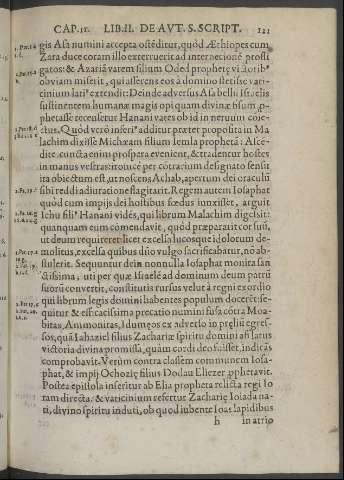 CAP. II. LIB. II. DE AVT. S. SCRIPT. 121
gis Asa numini accepta ostēditur, quòd Æthiopes cum
Zara duce coram illo exterruerit ad internecionē prosti
gatos: & Azariā vatem filium Oded prophetę vt Iosib'
obviam miserit, qui asserens eos à domino
cinium lari' extendit: Deinde adversus Asa belli Israelis
sustinentem humanæ magis opi quam divinæ
phetasse recensetur Hanani vates ob id in nervum conie
ctus. Quòd verò inferi' additur præter proposita in Ma
lachim dixisse Michæam filium Iemla prophetā: Asce
dite, cuncta enim prospera evenient, & tradentur hostes
in manus vestras: ironicè per cōtrarium designato sensu
ita obiectum est, ut noscens Achab, apertum dei oraculū
sibi reddi adiuratione flagitarit. Regem autem Iosaphat
quòd cum impijs dei hostibus fœdus iunxisset, arguit
Iehu fili' Hanani vidēs, qui librum Malachim digessit:
quanquam eum cōmendavit, quòd præpararit cor suū,
ut deum requireret licet excelsa lucosque idolorum de-
molitus, excelsa quibus diu vulgo sacrificabatur, nō ab-
stulerit. Sequuntur dein nonnulla Iosaphat monita san
ctissima, uti per quæ Israelē ad dominum deum patrū
suorū convertit, constitutis rursus velut à regni exordio
qui librum legis domini habentes populum docerēt: se-
quitur & efficacissima precatio numini fusa cōtra Moa-
bitas, Ammonitas, Idumęos ex adverso in pręliū egres-
sos, quā Iahaziel filius Zachariæ spiritu domini afflatus
victoria divina promissā, quàm cordi deo fuisset, indicās
comprobavit. Verùm contra classem communem Iosa-
phat, & impij Ochozię filius Dodau Eliezer ꝓphetavit.
Postea epistola inseritur ab Elia propheta relicta regi Io
ram directa: & vaticinium refertur Zacharię Ioiada na-
ti, divino spiritu induti, ob quod iubente Ioas lapidibus
h in atrio